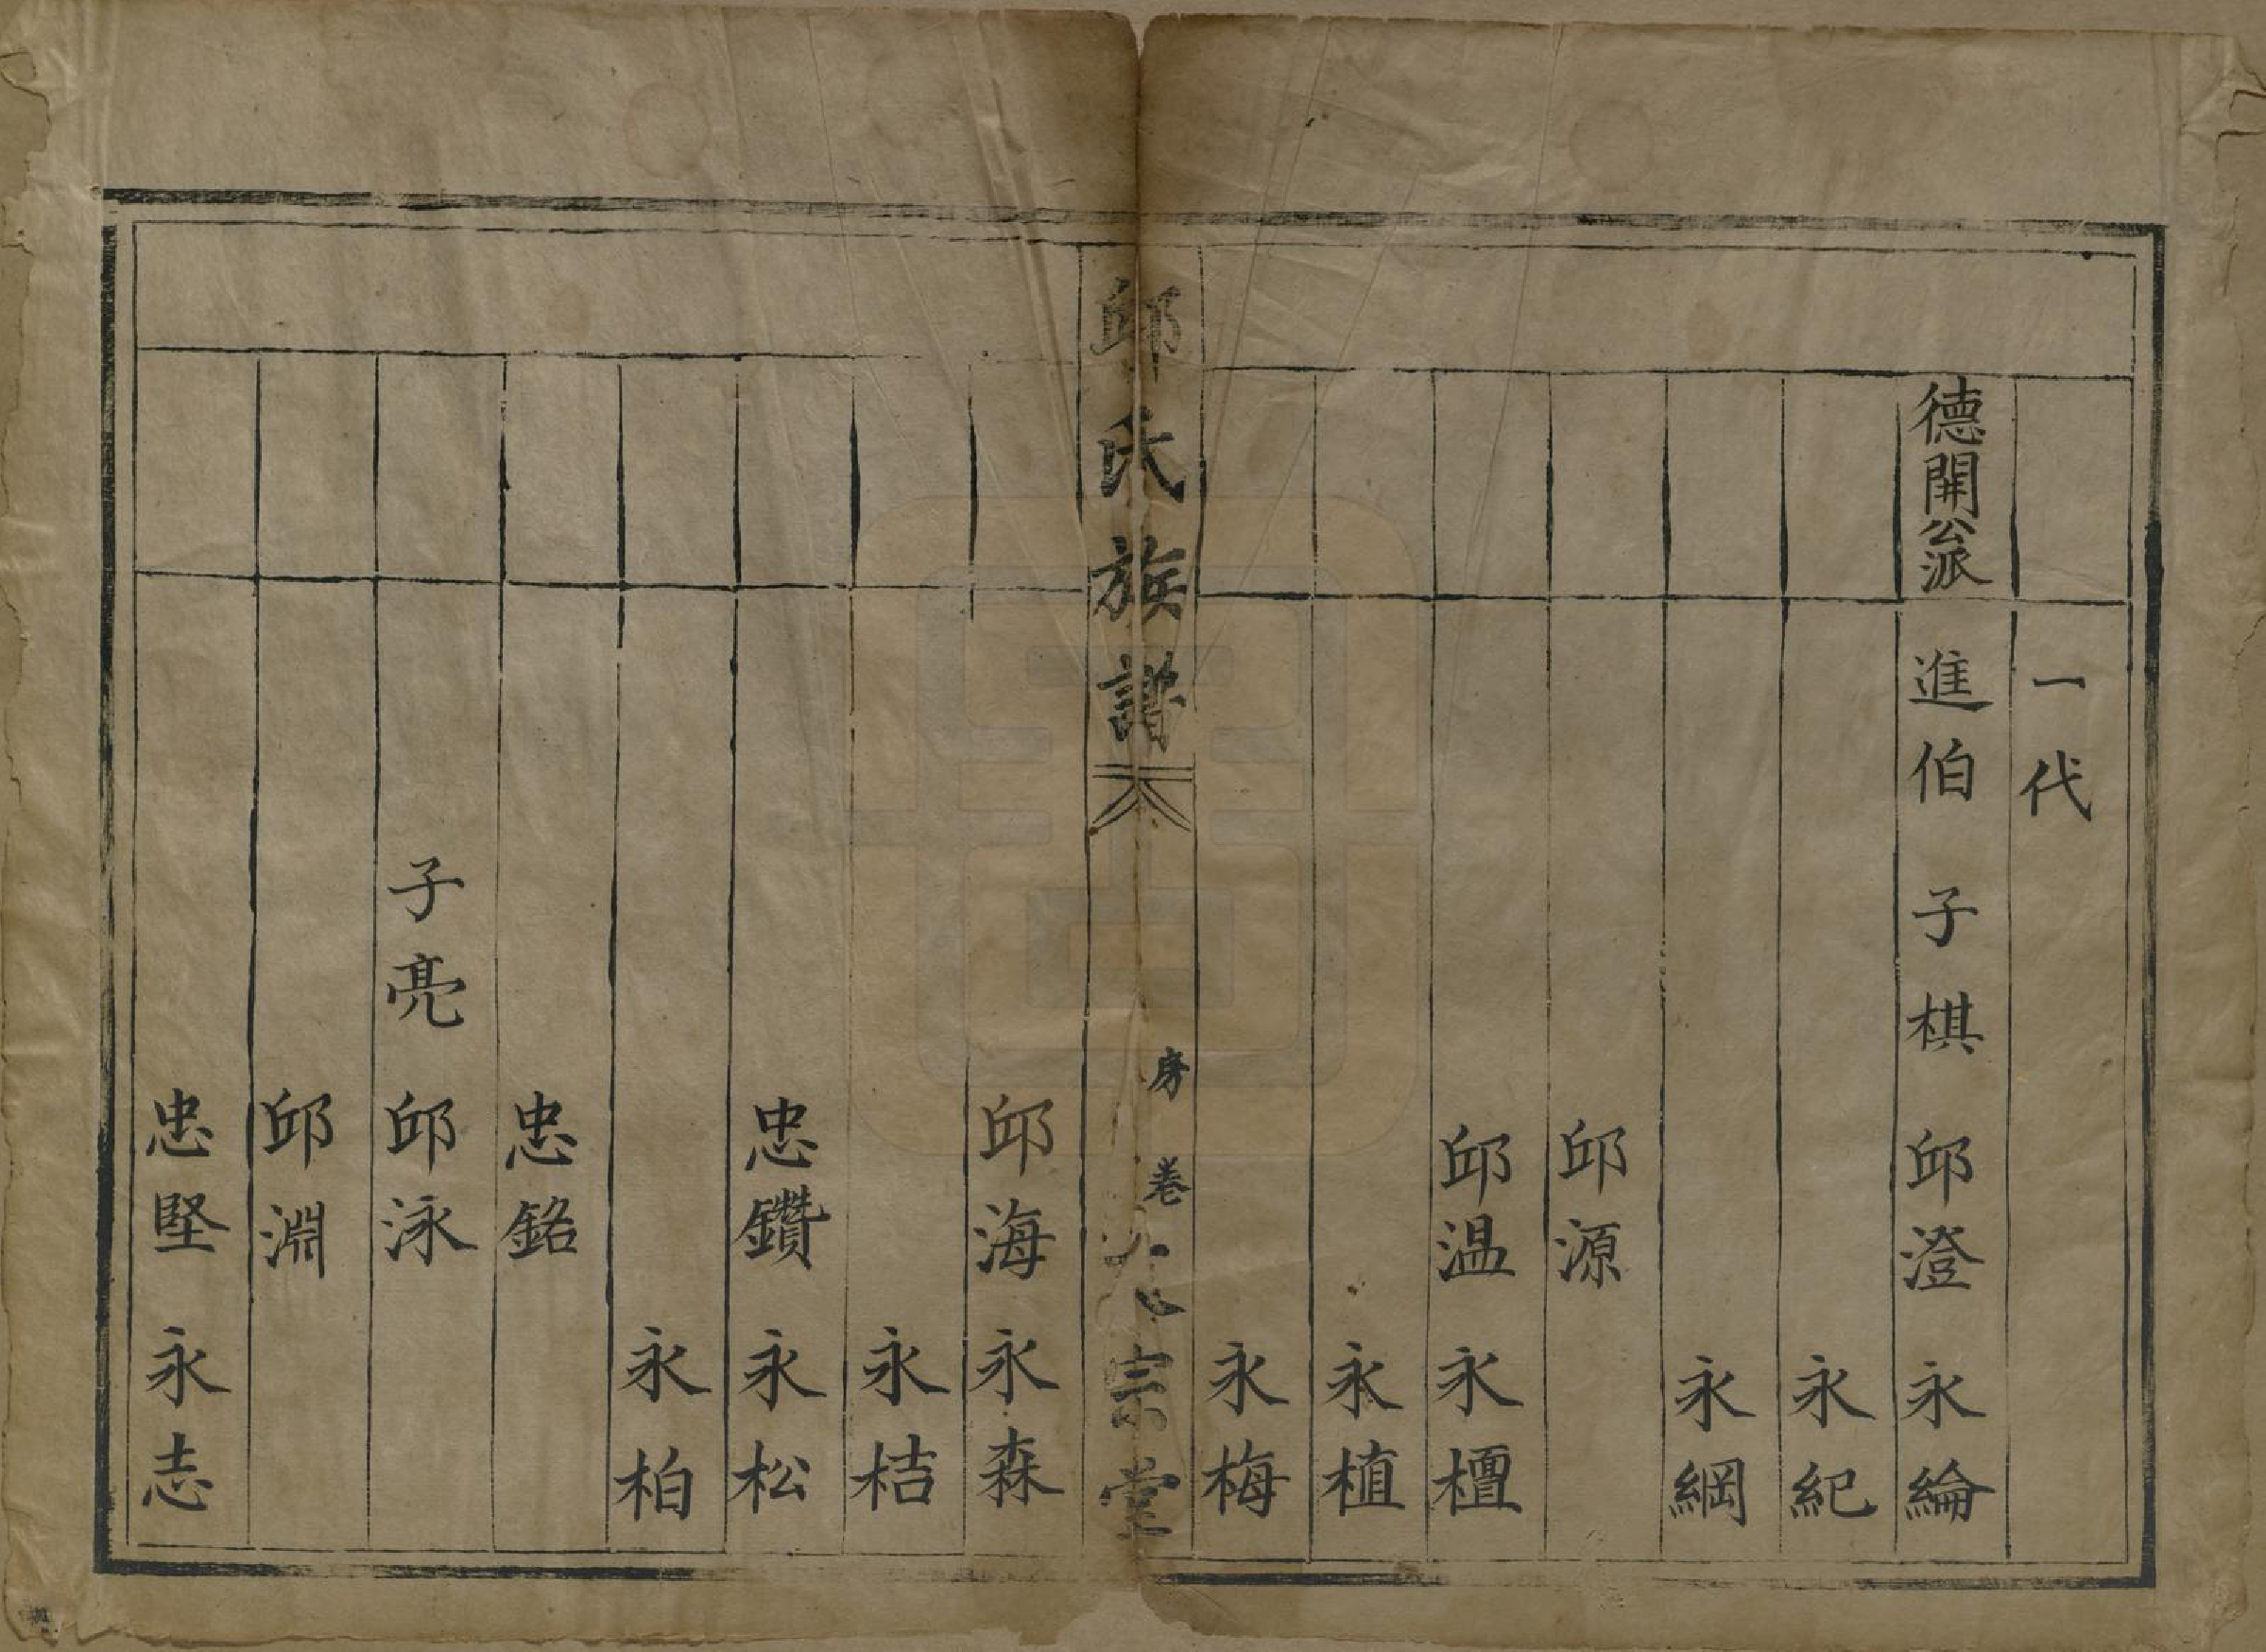 一代
德開公派 進伯 子棋 邱澄 永綸
永紀
永綱
邱源
邱温 永檀
永植
永梅
邱氏族譜 房 卷 宗堂
邱海 永森
永桔
忠鑽 永松
永柏
忠銘
子亮 邱泳
邱淵
忠堅 永志